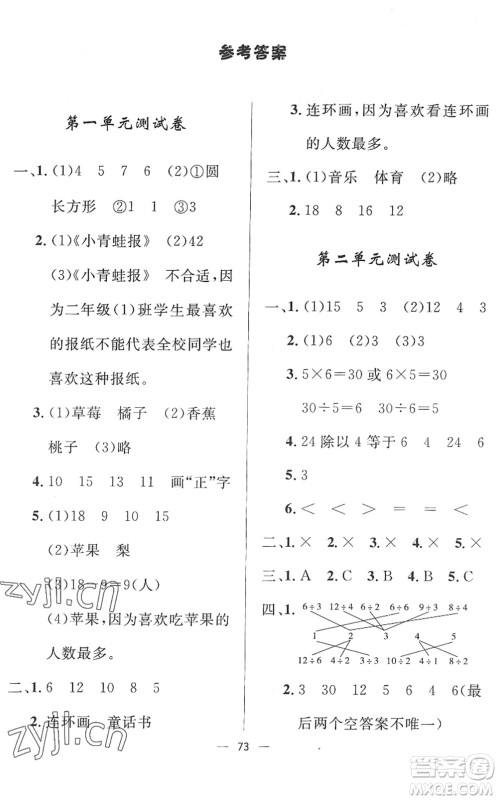 参考答案
第一单元测试卷
一、1. (1)4 5 7 6 (2)①圆
长方形 ②1 1 ③3
2. (1)《小青蛙报》 (2)42
(3)《小青蛙报》 不合适,因
为二年级(1)班学生最喜欢
的报纸不能代表全校同学也
喜欢这种报纸。
3. (1)草莓 橘子 (2)香蕉
桃子 (3)略
4. 10 15 13 11 画“正”字
5. (1)18 9 10 15
(2)苹果 梨
(3)18-9=9(人)
(4)苹果,因为喜欢吃苹果的
人数最多。
二、1. 6 12 10 8 5
2. 连环画 童话书
3. 连环画,因为喜欢看连环画
的人数最多。
三、1. (1)音乐 体育 (2)略
2. 18 8 16 12
第二单元测试卷
一、1. (1)15 5 3 (2)12 4 3
2. (1)6 3 (2)3 (3)3
3. 5×6=30 或 6×5=30
30÷5=6 30÷6=5
4. 24 除以 4 等于 6 4 6
5. 3
6. = < < > = <
二、1. × 2. × 3. × 4. × 5. ×
三、1. A 2. C 3. B 4. A 5. C
四、1. 6÷3 12÷4 6÷6 9÷3 8÷4
1 2 3 4 5
12÷6 8÷2 4÷4 10÷2 12÷3
2. 3 5 12 4 6 4 6(最
后两个空答案不唯一)
73
zyjl.cn
作业精灵